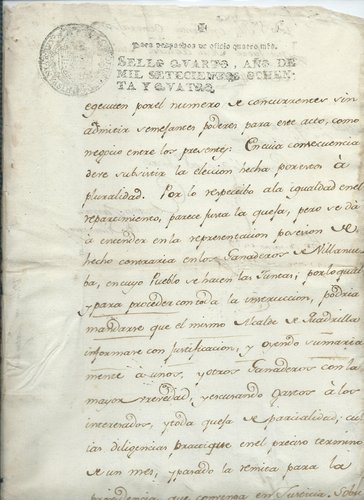 Para despachos de oficio quatro mrs.
SELLO QVARTO, AÑO DE
MIL SETECIENTOS OCHEN-
TA Y QVATRO.
egecuten por el numero de concurrentes sin
admitir semejantes poderes para este acto, como
negocio entre los presentes: En cuia consecuencia
deve subsistir la eleccion hecha por estos à
pluralidad. Por lo respectibo ala igualdad en el
repartimiento, parece justa la quexa, pero se dà
à entender en la representacion posesion de
hecho contraria en los Ganaderos de Villanue
ba, en cuyo Pueblo se hacen las Juntas; por lo qual
y para proceder con toda la instruccion, podria
mandarse que el mismo Alcalde de Quadrilla
informase con justificacion, y oyendo sumaria
mente à unos, y otros Ganaderos con la
mayor brevedad, y escusando gastos à los
interesados, y toda quexa de parcialidad; cu
ias diligencias practique en el preciso termino
de un mes, y pasado la remita para la
providencia que convenga en Justicia.